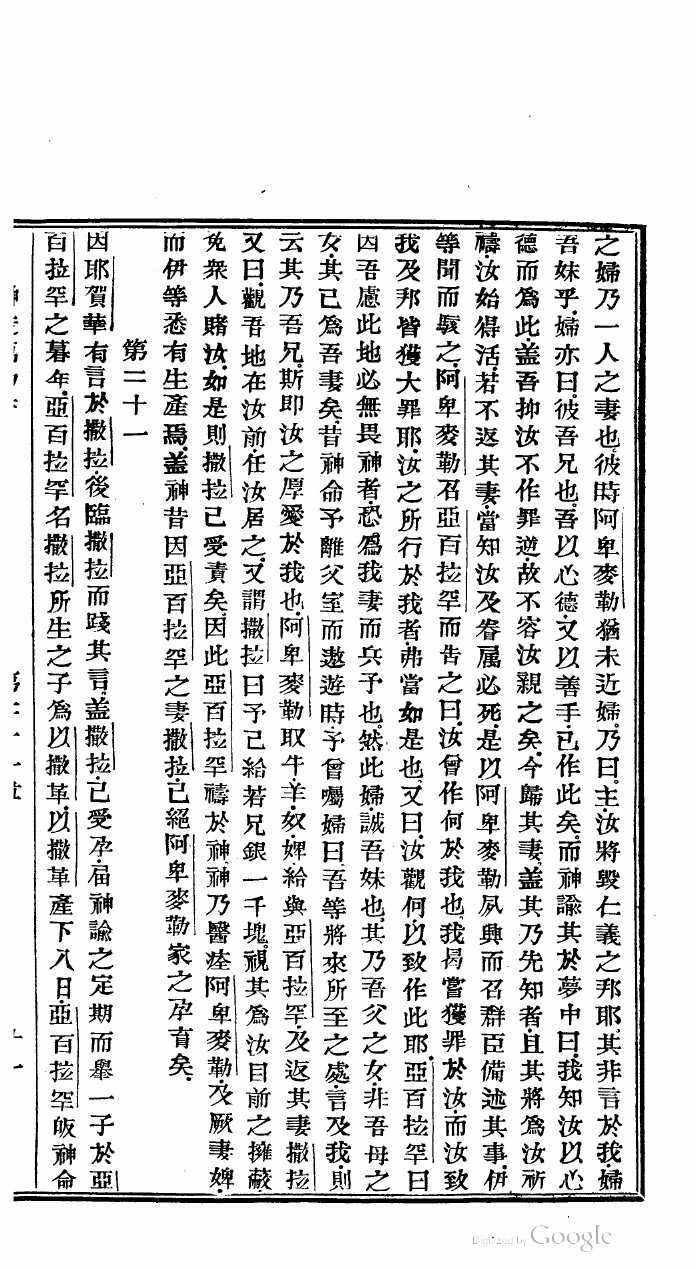 之婦乃一人之妻也.彼時阿卑麥勒猶未近婦.乃曰.主.汝將毀仁義之邦耶.其非言於我.婦
吾妹乎.婦亦曰.彼吾兄也.吾以心德.又以善手.已作此矣.而神諭其於夢中曰.我知汝以心
德而爲此.盖吾抑汝不作罪逆.故不容汝親之矣.今歸其妻.盖其乃先知者.且其將爲汝祈
禱.汝始得活.若不返其妻.當知汝及眷属必死.是以阿卑麥勒夙興而召群臣備述其事.伊
等聞而駭之.阿卑麥勒召亞百拉罕而告之曰.汝曾作何於我也.我曷嘗獲罪於汝.而汝致
我及邦皆獲大罪耶.汝之所行於我者.弗當如是也.又曰.汝觀何以致作此耶.亞百拉罕曰
因吾慮此地必無畏神者.恐爲我妻而兵予也.然此婦.誠吾妹也.其乃吾父之女.非吾母之
女.其已爲吾妻矣.昔神命予離父室而遨遊時.予曾囑婦曰.吾等將來所至之處.言及我.則
云其乃吾兄.斯即汝之厚愛於我也.阿卑麥勒取牛.羊.奴.婢.給與亞百拉罕.及返其妻撒拉
又曰.觀吾地在汝前.任汝居之.又謂撒拉曰予已給若兄銀一千塊.視其爲汝目前之擁蔽
免衆人賭汝.如是.則撒拉已受責矣.因此亞百拉罕禱於神.神乃醫痊阿卑麥勒.及厥妻婢.
而伊等悉有生產焉.盖神昔因亞百拉罕之妻撒拉.已絕阿卑麥勒家之孕育矣.
第二十一
因耶賀華有言於撒拉.後臨撒拉而踐其言.盖撒拉已受孕.屆神諭之定期而舉一子於亞
百拉罕之暮年.亞百拉罕名撒拉所生之子爲以撒革.以撒革產下八日.亞百拉罕皈神命
Digitized by Google